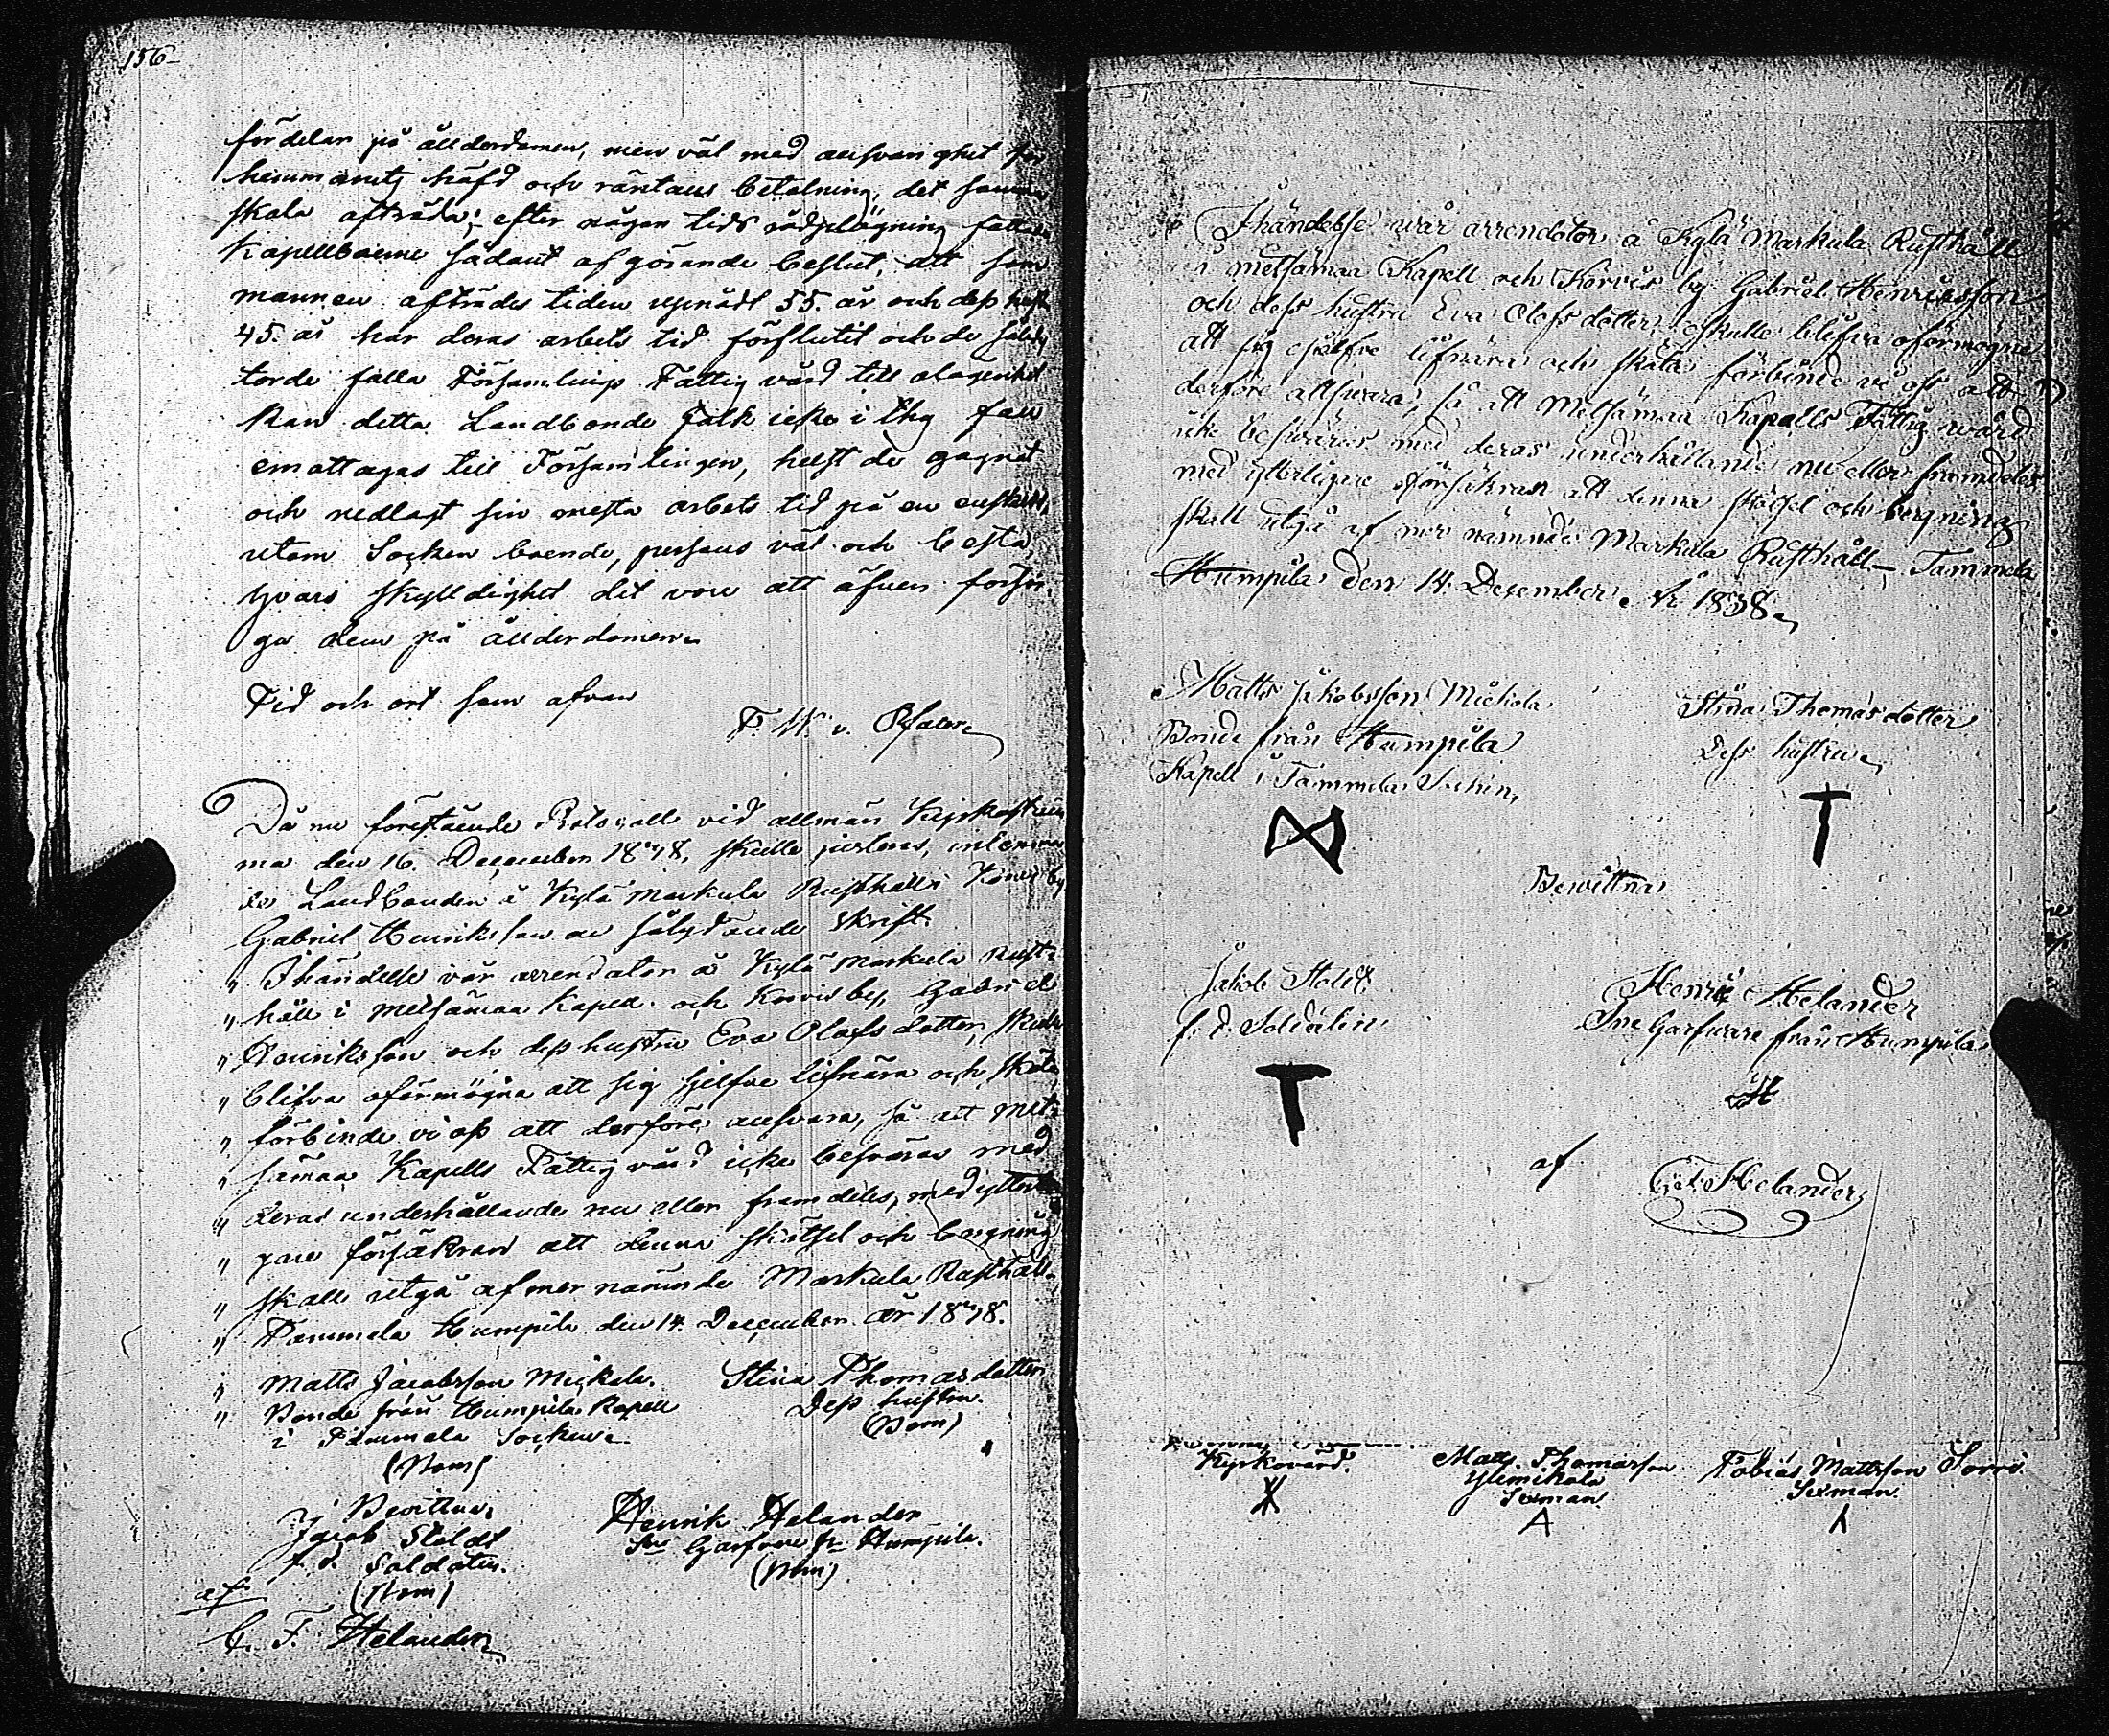 156
fördelar på ålderdomen, men väl med ansvarighet för
hemmanets häfd och räntans betalning, det samma
skola afträda; efter någon tids rådplägning fattade
Kapellboerne sådant afgörande beslut, att som
mannen afträdes tiden uppnådt 55. år och dess hustru
45. år har deras arbets tid förflutit och de såled.
torde falla Församlings Fattigvård till olägenhet
kan detta Landbonde folk icke i thy fall
emottagas till Församlingen, helst de gagnat
och nedlagt sin mesta arbets tid på en enskild,
utom Socken boende, persons väl och bästa,
hvars skylldighet det vore att äfven försör-
ga dem på ålderdomen.
Tid och ort som ofvan
F. W. v. Pfaler
Då nu förestående Protocoll vid allmän Kyrkostäm
ma den 16. December 1838, skulle justeras, inlemna
des Landbonden å Kylä Markula Rusthåll i Korvis by
Gabriel Henriksson en sålydande skrift.
„ I händelse vår arrendator å Kylä Markula Rust-
„ håll i Metsämaa Kapell och Korvis by, Gabriel
„ Henriksson och dess hustru Eva Olofs dotter, skulle
„ blifva oförmögna att sig sjelfve lifnära och sköta,
„ förbinde vi oss att derföre ansvara, så att Met-
„ sämaa Kapells Fattigvård icke besväras med
„ deras underhållande nu eller framdeles, med ytterli
„ gare försäkran att denna skötsel och bergning
„ skall utgå af mer nämnde Markula Rusthåll.
„ Tammela Humpila den 14. December år 1838.
„ Matts Jacobsson Mickola. Stina Thomasdotter
„ Bonde från Humpila Kapell Dess hustru.
i Tammela Socken. (Bom)
(Bom)
Bevittna;
Jacob Stoldt Henrik Helander
f. d. Soldaten. Sne Garfvare fr. Humpila.
(Bom) (Bom)
af
C. F. Helander
I händelse wår arrendator å Kylä Markula Rusthåll
i Metsämaa Kapell och Korvis by Gabriel Henriksson
och dess hustru Eva Olofs dotter, skulle blifva oförmögne
att sig sjelfve lifnära och sköta förbinde vi oss att
derföre allswara, så att Metsämaa Kapells Fattig wård
icke beswäras med deras underhållande nu eller framdeles
med ytterligare försäkran att denna skötsel och bergning
skall utgå af mer nämnde Markula Rusthåll – Tammela
Humpila den 14. December År 1838.
Matts Jakobsson Mickola Stina Thomas dotter
Bonde från Humpila Dess hustru
Kapell i Tammela Sockn,
Bewittna
Jakob Stoldt Henric Helander
f. d. Soldaten Sne Garfware från Humpila
H
af C. F. Helander
Kyrkovärd. Matts Thomasson Tobias Mattsson Sorri.
Ylimikola Sexman.
Sexman